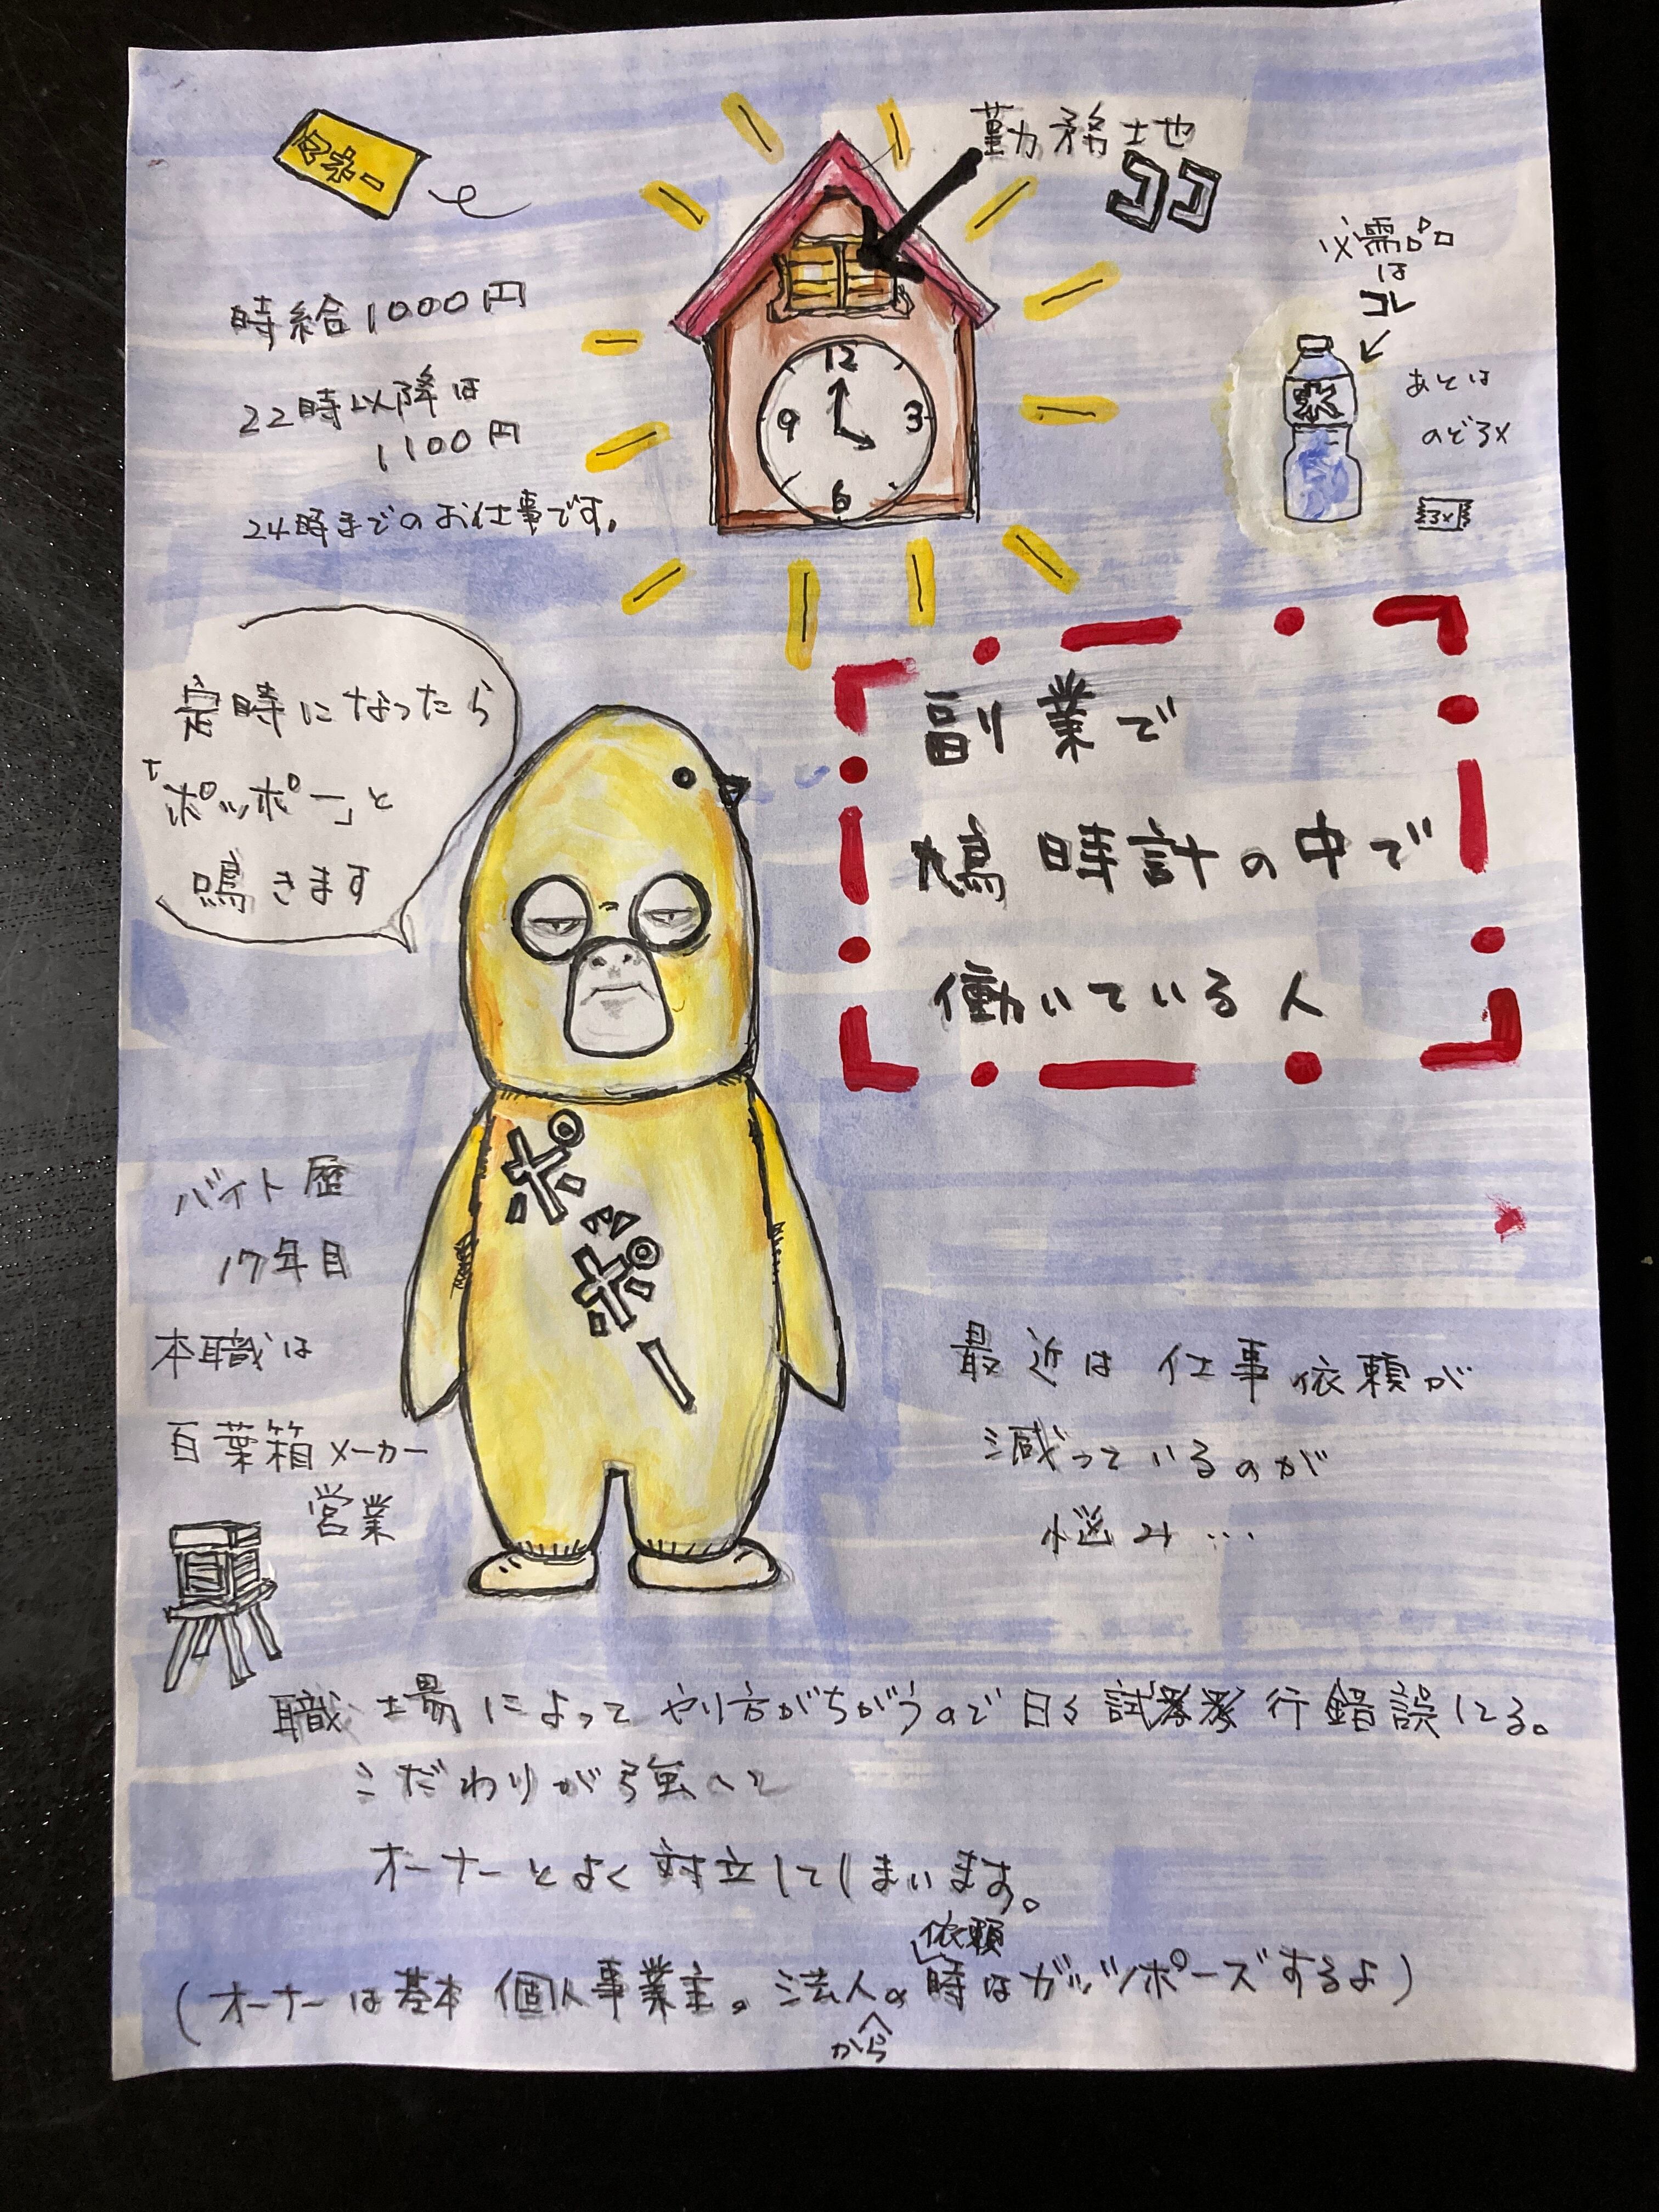 マネー
勤務地
ココ
必需品
は
コレ
水
あとは
のどあめ
あめ
時給1000円
22時以降は
1100円
24時までのお仕事です。
12
3
6
9
定時になったら
「ポッポー」と
鳴きます
副業で
鳩時計の中で
働いている人
ポッポー
バイト歴
17年目
本職は
百葉箱メーカー
営業
最近は仕事依頼が
減っているのが
悩み…
職場によってやり方がちがうので日々試行錯誤してる。
こだわりが強いと
オーナーとよく対立してしまいます。
(オーナーは基本個人事業主。法人の から 依頼時はガッツポーズするよ)